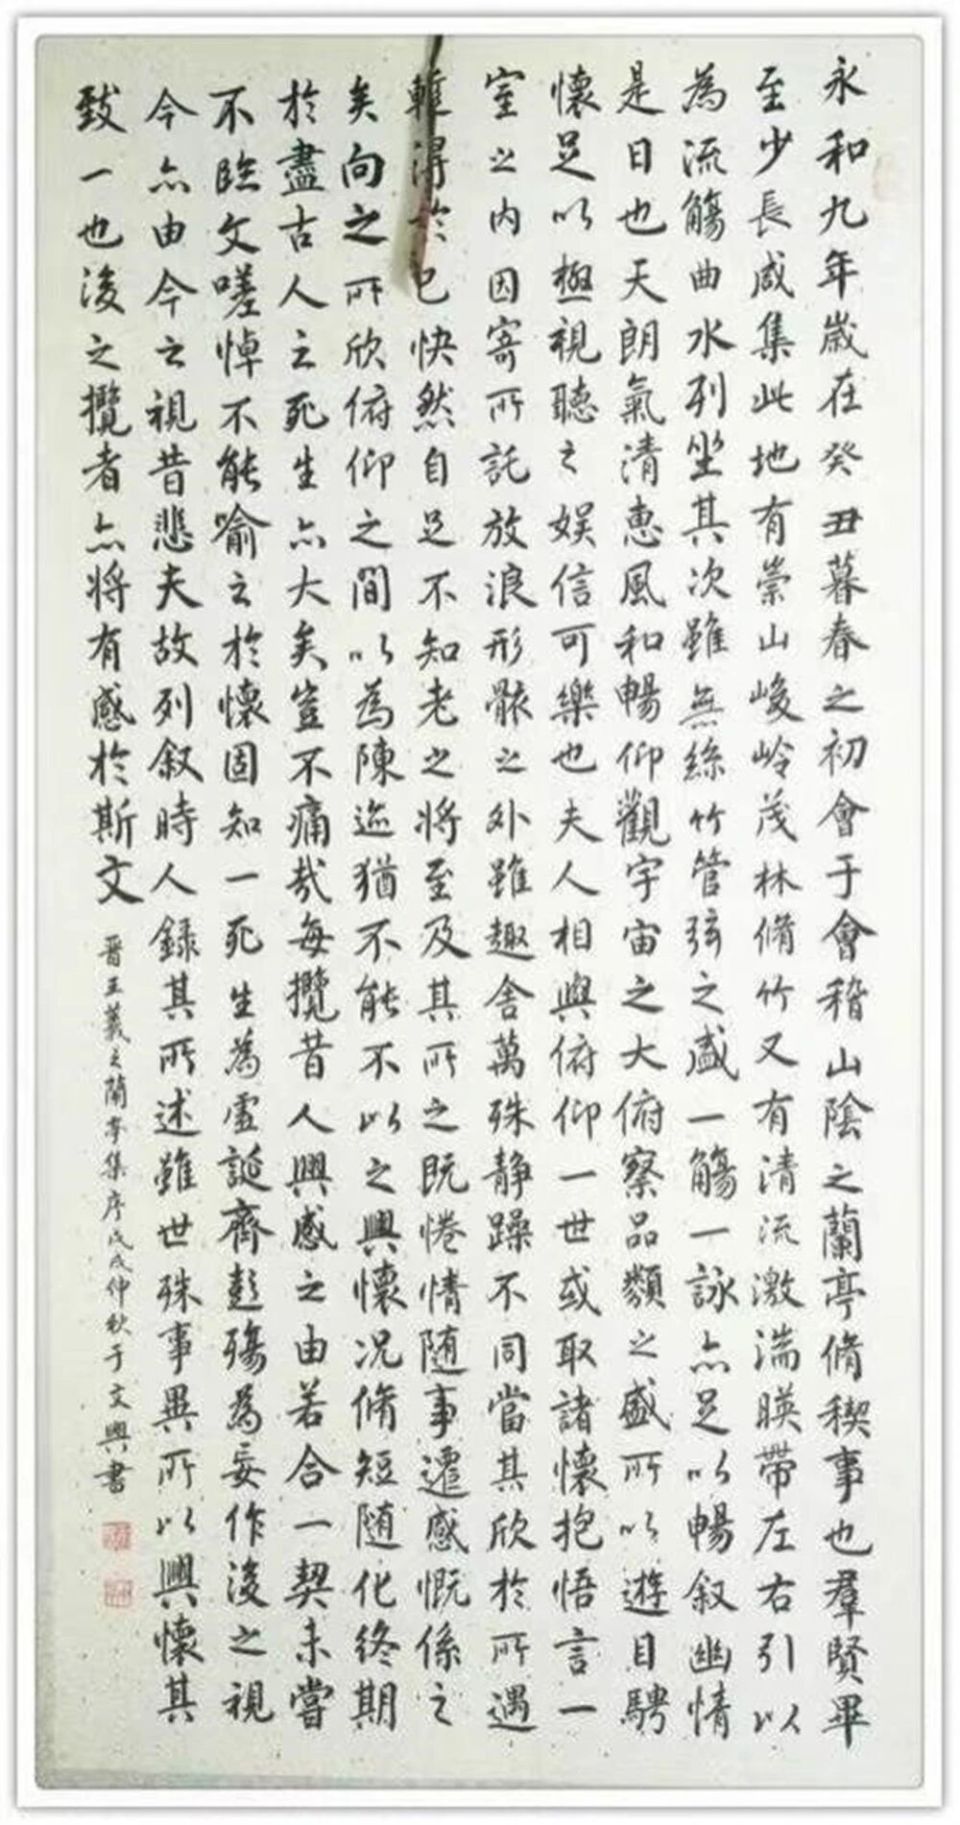 永和九年歲在癸丑暮春之初會于會稽山陰之蘭亭脩稧事也羣賢畢
至少長咸集此地有崇山峻岭茂林脩竹又有清流激湍暎帶左右引以
為流觴曲水列坐其次雖無絲竹管弦之盛一觴一詠亦足以暢叙幽情
是日也天朗氣清惠風和暢仰觀宇宙之大俯察品類之盛所以遊目騁
懷足以極視聽之娱信可樂也夫人相與俯仰一世或取諸懷抱悟言一
室之内因寄所託放浪形骸之外雖趣舍萬殊静躁不同當其欣於所遇
暫得於己快然自足不知老之將至及其所之既惓情随事遷感慨係之
矣向之所欣俯仰之間以為陳迹猶不能不以之興懷况脩短随化終期
於盡古人云死生亦大矣豈不痛哉每攬昔人興感之由若合一契未嘗
不臨文嗟悼不能喻之於懷固知一死生為虛誕齊彭殤為妄作後之視
今亦由今之視昔悲夫故列叙時人錄其所述雖世殊事異所以興懷其
致一也後之攬者亦將有感於斯文
晋王羲之蘭亭集序戊戌仲秋于文興書